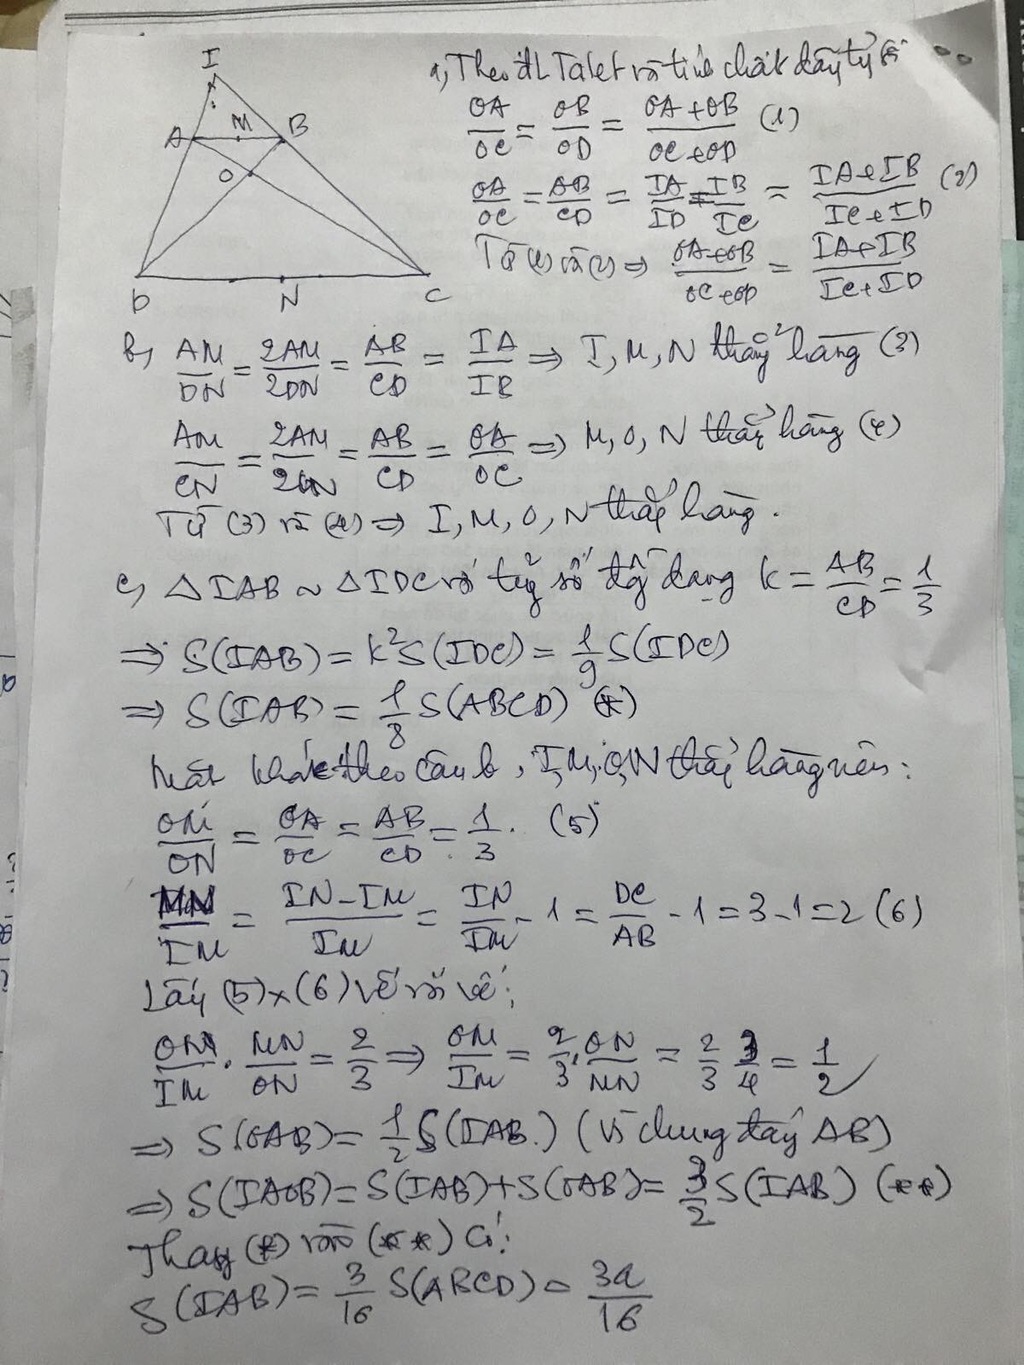 I
A M B
O
D N C
a, Theo đL Talet và tính chất dãy tỷ số
OA/OC = OB/OD = (OA+OB)/(OC+OD) (1)
OA/OC = AB/CD = IA/ID = IB/IC = (IA+IB)/(IC+ID) (2)
Từ (1) và (2) => (OA+OB)/(OC+OD) = (IA+IB)/(IC+ID)
b, AM/DN = 2AM/2DN = AB/CD = IA/IB => I, M, N thẳng hàng (3)
AM/CN = 2AM/2CN = AB/CD = OA/OC => M, O, N thẳng hàng (4)
Từ (3) và (4) => I, M, O, N thẳng hàng.
c, △IAB ~ △IDC với tỷ số đồng dạng k = AB/CD = 1/3
=> S(IAB) = k²S(IDC) = 1/9 S(IDC)
=> S(IAB) = 1/8 S(ABCD) (*)
Mặt khác theo câu b, I, M, O, N thẳng hàng nên:
OM/ON = OA/OC = AB/CD = 1/3. (5)
MN/IM = (IN-IM)/IM = IN/IM - 1 = DC/AB - 1 = 3-1 = 2 (6)
Lấy (5)x(6) vế với vế:
OM/IM . MN/ON = 2/3 => OM/IM = 2/3 . ON/MN = 2/3 3/4 = 1/2
=> S(OAB) = 1/2 S(IAB.) (Vì chung đáy AB)
=> S(IAOB) = S(IAB)+S(OAB) = 3/2 S(IAB) (**)
Thay (*) vào (**) có:
S(IAB) = 3/16 S(ABCD) = 3a/16